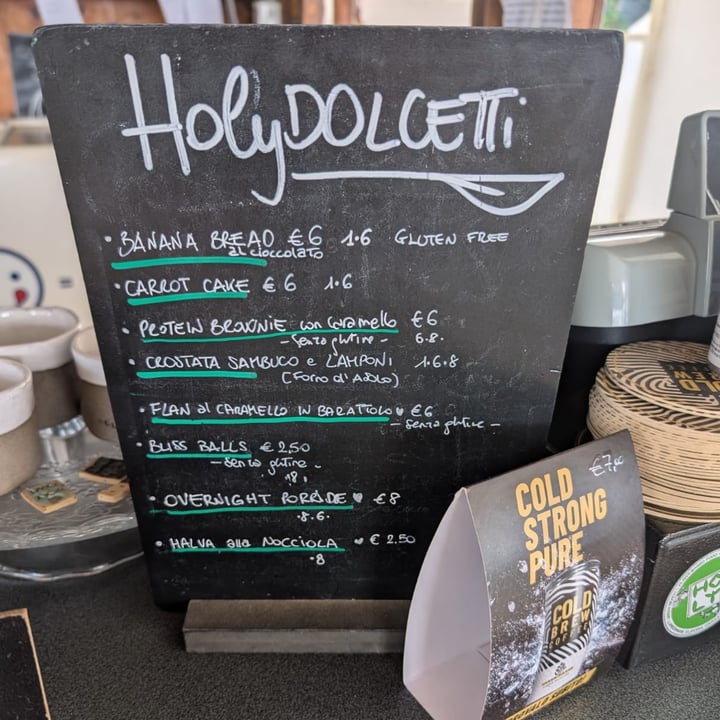 HolyDOLCETTi
• BANANA BREAD €6 1•6 GLUTEN FREE
al cioccolato
• CARROT CAKE €6 1•6
• PROTEIN BROWNIE con Caramello €6
- Senza glutine - 6•8•
• CROSTATA SAMBUCO e LAMPONI 1•6•8
(Forno d'Adolo)
• FLAN al CARAMELLO IN BARATTOLO ♥ €6
- Senza glutine -
• BLISS BALLS €2,50
- Senza glutine -
•18•
• OVERNIGHT PORRIDE ♥ €8
•8•6•
• HALVA alla NOCCIOLA ♥ €2.50
•8
€7,00
COLD
STRONG
PURE
COLD
BREW
COFFEE
COLD
BREW
HO
LY